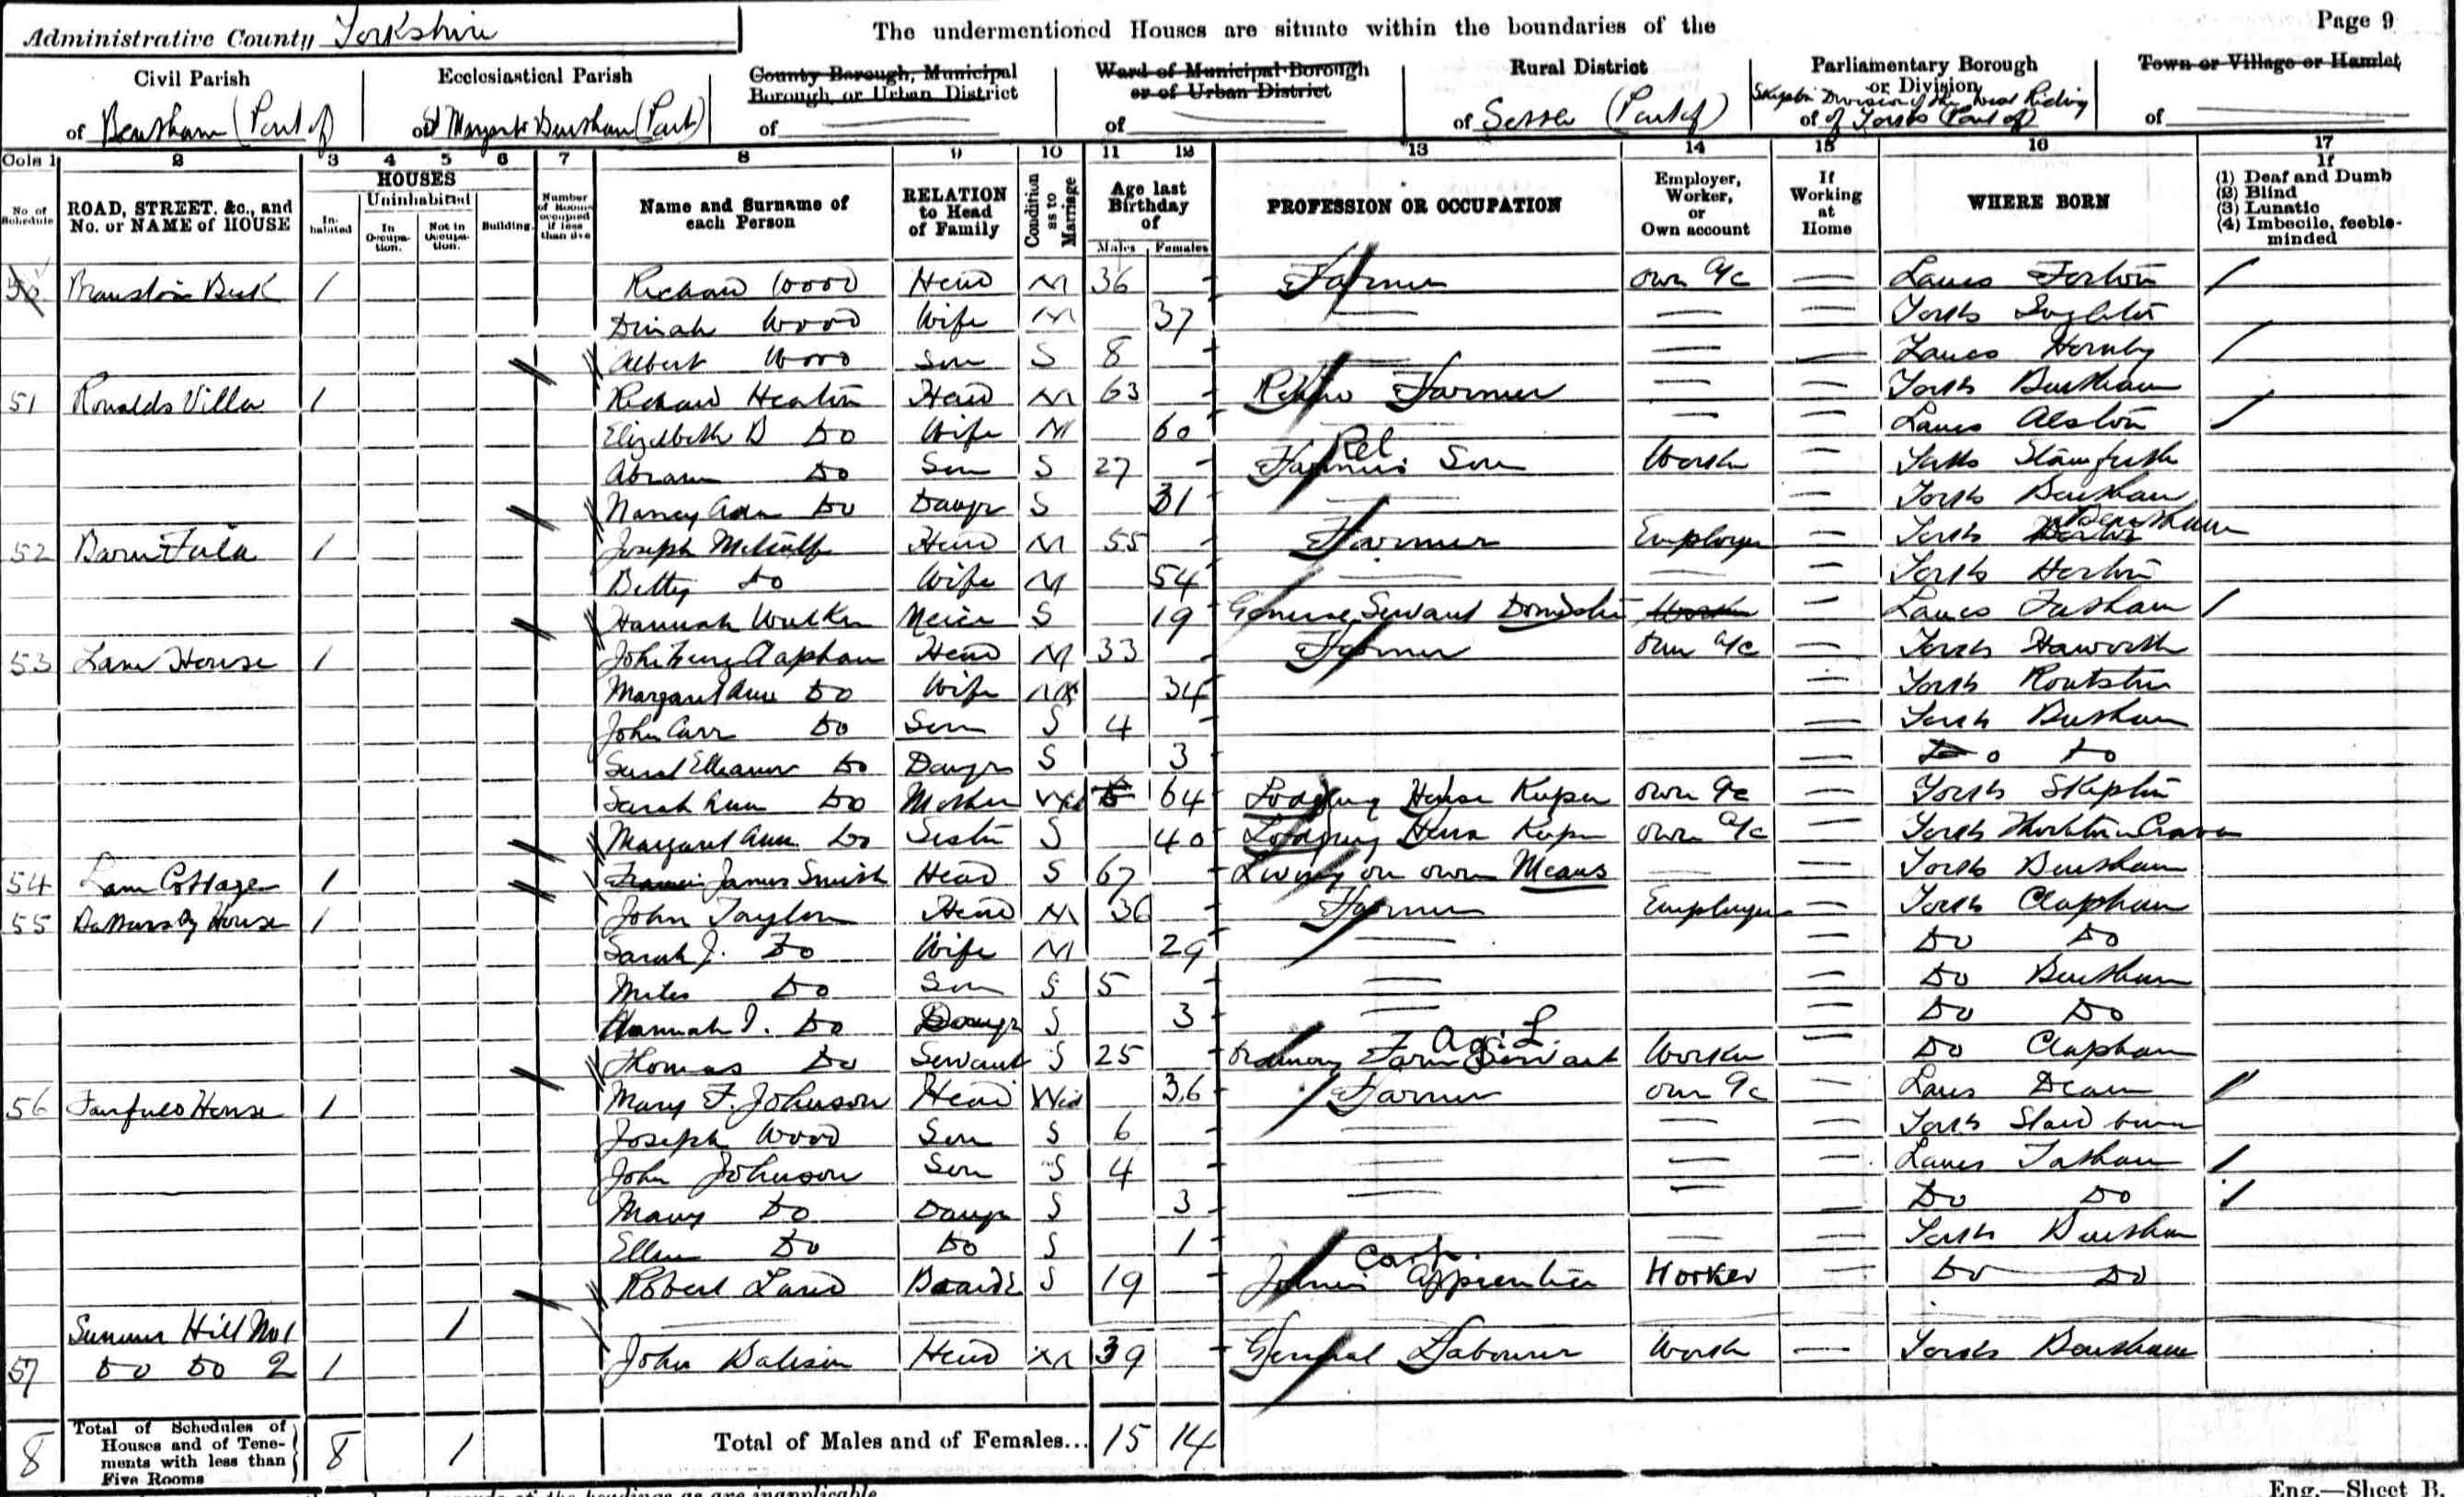 Administrative County Yorkshire
The undermentioned Houses are situate within the boundaries of the
Page 9
Civil Parish of Bentham (Part of)
Ecclesiastical Parish of St Margarets Bentham (Part)
County Borough, Municipal Borough, or Urban District of
Ward of Municipal Borough or of Urban District of
Rural District of Settle (Part of)
Parliamentary Borough or Division of Skipton Division of the West Riding of Yorks (Part of)
Town or Village or Hamlet of
Cols 1 2 3 4 5 6 7 8 9 10 11 12 13 14 15 16 17
No. of Schedule
ROAD, STREET, &c., and No. or NAME of HOUSE
HOUSES
Inhabited
Uninhabited
In Occupation.
Not in Occupation.
Building.
Number of Rooms occupied if less than five
Name and Surname of each Person
RELATION to Head of Family
Condition as to Marriage
Age last Birthday of
Males Females
PROFESSION OR OCCUPATION
Employer, Worker, or Own account
If Working at Home
WHERE BORN
If
(1) Deaf and Dumb
(2) Blind
(3) Lunatic
(4) Imbecile, feeble-minded
50 1 Richard Wood Head M 36 Farmer own a/c Lancs Forton
Dinah Wood Wife M 37 Yorks Ingleton
Albert Wood Son S 8 Lancs Hornby
51 Ronalds Villa 1 Richard Heaton Head M 63 Retired Farmer Yorks Bentham
Elizabeth B Do Wife M 60 Lancs Alston
Abram Do Son S 27 Farmers Ret Son Worker Yorks Stainforth
Nancy Ada Do Daugr S 31 Yorks Bentham
52 1 Joseph Metcalfe Head M 55 Farmer Employer Yorks Bentham
Betty Do Wife M 54 Yorks Horton
Hannah Walker Neice S 19 General Servant Domestic Worker Lancs Tatham
53 Lane House 1 John Henry Clapham Head M 33 Farmer own a/c Yorks Haworth
Margaret Ann Do Wife M 34 Yorks
John Carr Do Son S 4 Yorks Bentham
Sarah Elleanor Do Daugr S 3 Do Do
Sarah Ann Do Mother Wid 64 Lodging House Keeper own a/c Yorks Skipton
Margaret Ann Do Sister S 40 Lodging House Keeper own a/c Yorks Thornton Craven
54 Lane Cottage 1 Francis James Smith Head S 67 Living on own Means Yorks Bentham
55 Battersby House 1 John Taylor Head M 36 Farmer Employer Yorks Clapham
Sarah J. Do Wife M 29 Do Do
Miles Do Son S 5 Do Bentham
Hannah I. Do Daugr S 3 Do Do
Thomas Do Servant S 25 Ordinary Farm Servant Ag. L. Worker Do Clapham
56 Fairfield House 1 Mary F. Johnson Head Wid 36 Farmer own a/c Lancs
Joseph Wood Son S 6 Yorks Slaidburn
John Johnson Son S 4 Lancs Tatham
Mary Do Daugr S 3 Do Do
Ellen Do Do S 1 Yorks Bentham
Robert Boarder S 19 Joiners Apprentice Carp. Worker Do Do
Summer Hill No 1 1
57 Do Do 2 1 John Head M 39 General Labourer Worker Yorks Bentham
8 Total of Schedules of Houses and of Tenements with less than Five Rooms 8 1 Total of Males and of Females... 15 14
Eng.—Sheet B.